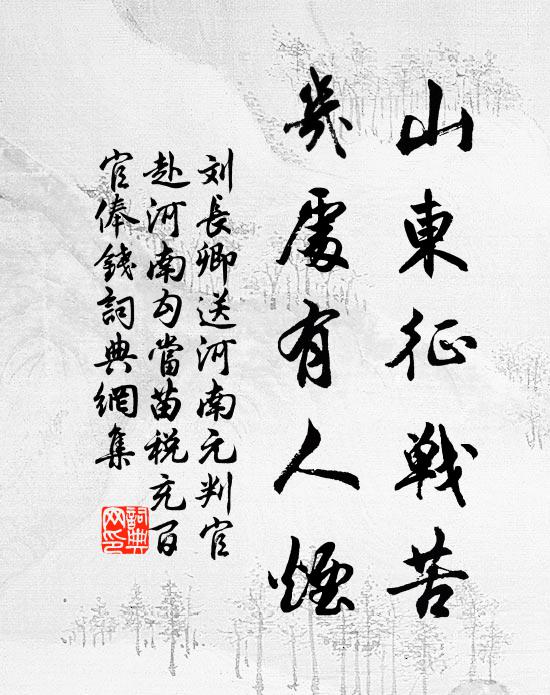 山東征戰苦
幾處有人煙
刘長卿送河南元判官
赴河南勾當苗税充百
官俸錢詞典網集
詞典
网印